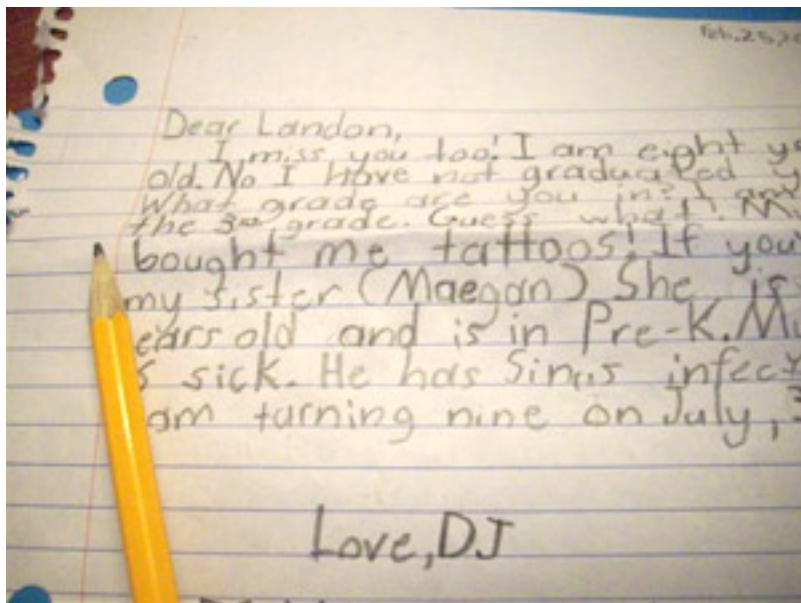 Feb. 25, 20
Dear Landon,
I miss you too! I am eight y
old. No I have not graduated y
What grade are you in? I am
the 3rd grade. Guess what! M
bought me tattoos! If you
my sister (Maegan) She is
ears old and is in Pre-K. M
s sick. He has Sinus infect
am turning nine on July, 3
Love, DJ